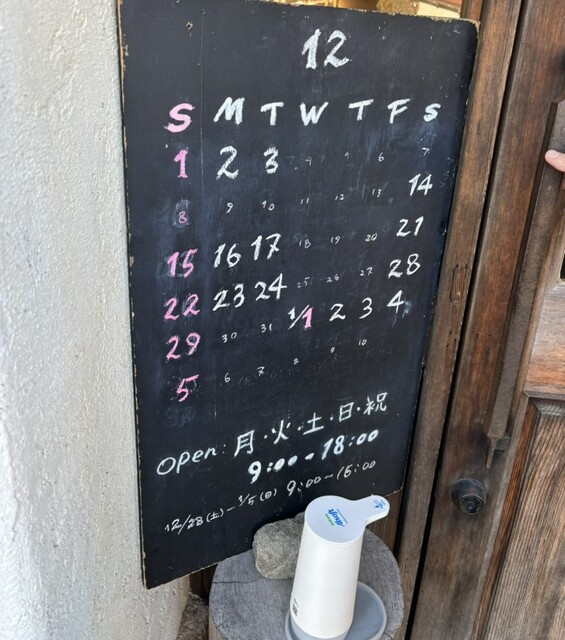 12
S M T W T F S
1 2 3 4 5 6 7
8 9 10 11 12 13 14
15 16 17 18 19 20 21
22 23 24 25 26 27 28
29 30 31 1/1 2 3 4
5 6 7 8 9 10
Open: 月・火・土・日・祝
9:00-18:00
12/28(土)-1/5(日) 9:00-16:00